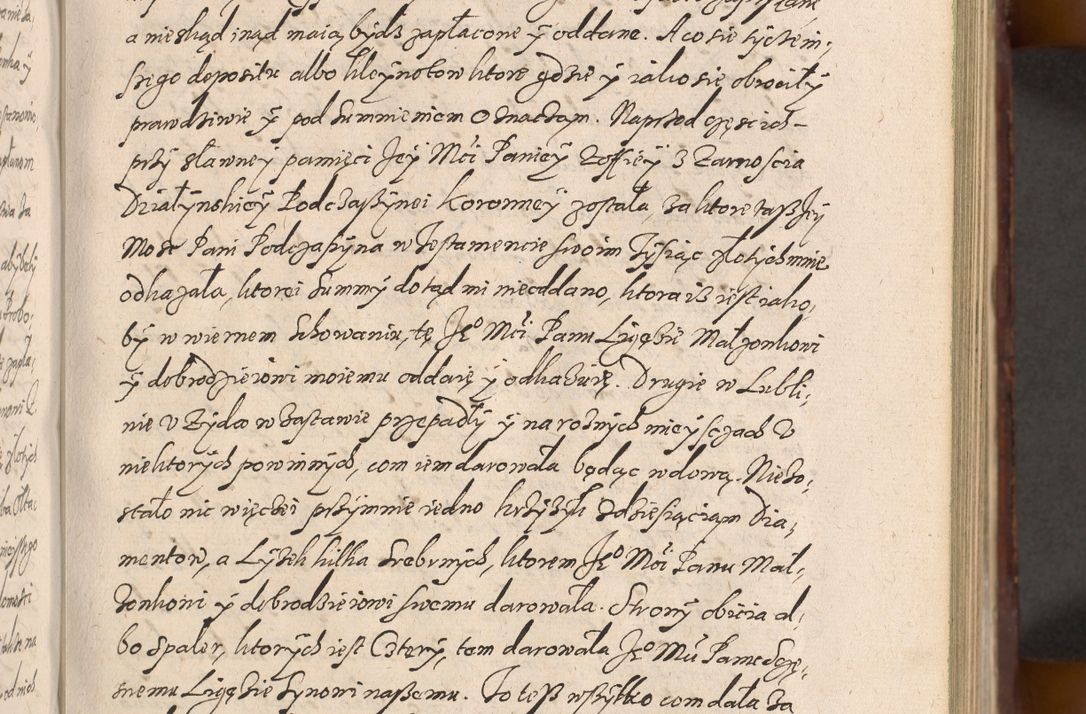 a nie skąd inąd maią bydź zapłacone ÿ oddane. A co sie tycze in,
szego depositu albo kleynotow ktore gdzie ÿ iako się obrociłÿ
prawdziwie ÿ pod Sumnieniem oznaczam. Naprzod częsc ich
przÿ sławneÿ pamięci Jeÿ Mci Panieÿ Zoffieÿ z Zamoscia
Działynskieÿ Podczaszÿnei Koronneÿ została, za ktore taż Jeÿ
Mosc Pani Podczaszÿna w Testamencie swoim Tÿsiąc złotÿch mnie
odkazała, ktorei Summÿ dotąd mi nie oddano, ktora iż iest iako,
bÿ w wiernem Schowaniu, tę Jeo Mci Panu Ligęzie Małzonkowi
ÿ dobrodzieiowi moiemu oddaię ÿ odkazuię. Drugie w Lubli,
nie v Zÿda w zastawie przepadłÿ ÿ na roznÿch mieÿscach v
niektorÿch powinnÿch, com iem darowała będąc wdową. Nie zo,
stało nic więcei przÿ mnie iedno krzÿżÿk z dziesiąciąm Dia,
mentow, a Lÿżek kilka Srebrnÿch, ktorem Jeo Mci Panu Mał,
zonkowi ÿ dobrodzieiowi swemu darowała. Stronÿ obicia al,
bo Spaler, ktorÿch iest Czterÿ, tem darowała Jeo Mci Panu Szczę,
snemu Ligęzie Sÿnowi naszemu. To też wszÿtko com dała za